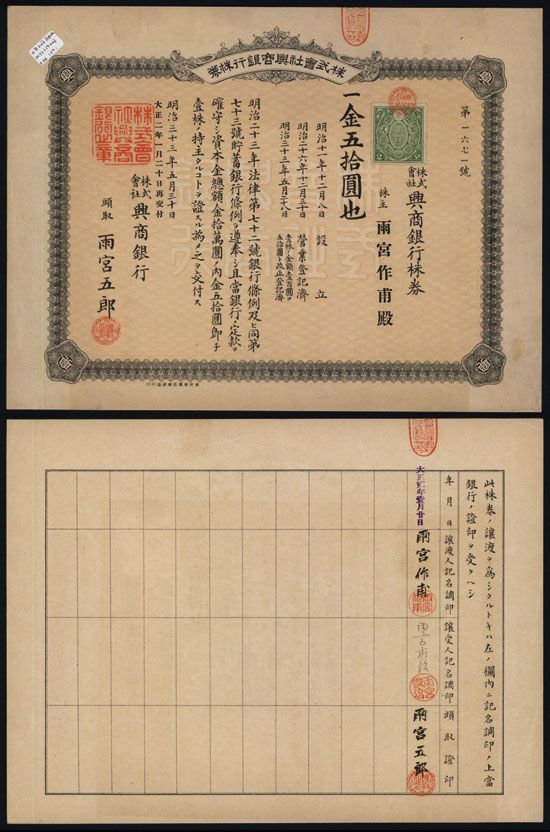 株式會社興商銀行株券
第一六七一號
株式會社 興商銀行株券
株主 雨宮作甫殿
一金五拾圓也
明治十一年十二月八日 設立
明治二十六年十二月三十日 營業登記濟
明治三十三年五月二十八日
五拾圓ト改正登記濟
明治二十三年法律第七十二號銀行條例及ヒ同第
七十三號貯蓄銀行條例ヲ遵奉シ且當銀行ノ定款ヲ
確守シ資本金總額金拾萬圓ノ內金五拾圓卽チ
壹株ノ持主タルコトヲ證スル爲メ之ヲ交付ス
明治三十三年五月三十日
大正二年一月二十日再交付
株式會社 興商銀行
頭取 雨宮五郎
株式會社興商銀行之章
此株券ノ讓渡ヲ爲シタルトキハ左ノ欄內ニ記名調印ノ上當
銀行ノ證印ヲ受クヘシ
年月日 讓渡人記名調印 讓受人記名調印 頭取證印
大正貳年壹月廿日 雨宮作甫 雨宮五郎